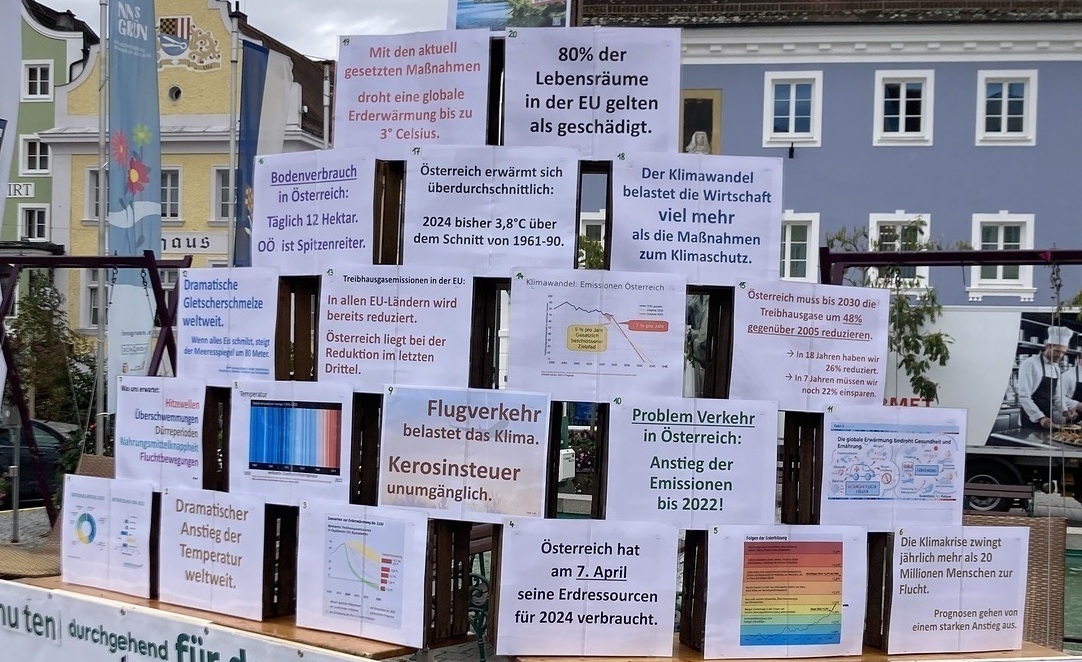 INS
GRÜN
19
Mit den aktuell
gesetzten Maßnahmen
droht eine globale
Erderwärmung bis zu
3° Celsius.
20
80% der
Lebensräume
in der EU gelten
als geschädigt.
16
Bodenverbrauch
in Österreich:
Täglich 12 Hektar.
OÖ ist Spitzenreiter.
17
Österreich erwärmt sich
überdurchschnittlich:
2024 bisher 3,8°C über
dem Schnitt von 1961-90.
18
Der Klimawandel
belastet die Wirtschaft
viel mehr
als die Maßnahmen
zum Klimaschutz.
Dramatische
Gletscherschmelze
weltweit.
Wenn alles Eis schmilzt, steigt
der Meeresspiegel um 80 Meter.
13
Treibhausgasemissionen in der EU:
In allen EU-Ländern wird
bereits reduziert.
Österreich liegt bei der
Reduktion im letzten
Drittel.
14
Klimawandel: Emissionen Österreich
6 % pro Jahr
Gesetzlich
beschlossener
Zielpfad
15
Österreich muss bis 2030 die
Treibhausgase um 48%
gegenüber 2005 reduzieren.
→ In 18 Jahren haben wir
26% reduziert.
→ In 7 Jahren müssen wir
noch 22% einsparen.
Was uns erwartet:
Hitzewellen
Überschwemmungen
Dürreperioden
Nahrungsmittelknappheit
Fluchtbewegungen
Temperatur
9
Flugverkehr
belastet das Klima.
Kerosinsteuer
unumgänglich.
10
Problem Verkehr
in Österreich:
Anstieg der
Emissionen
bis 2022!
11
Die globale Erwärmung bedroht Gesundheit und
Ernährung.
2
Dramatischer
Anstieg der
Temperatur
weltweit.
3
Szenarien zur Erderwärmung bis 2100
4
Österreich hat
am 7. April
seine Erdressourcen
für 2024 verbraucht.
5
Folgen der Erderhitzung
6
Die Klimakrise zwingt
jährlich mehr als 20
Millionen Menschen zur
Flucht.
Prognosen gehen von
einem starken Anstieg aus.
durchgehend für